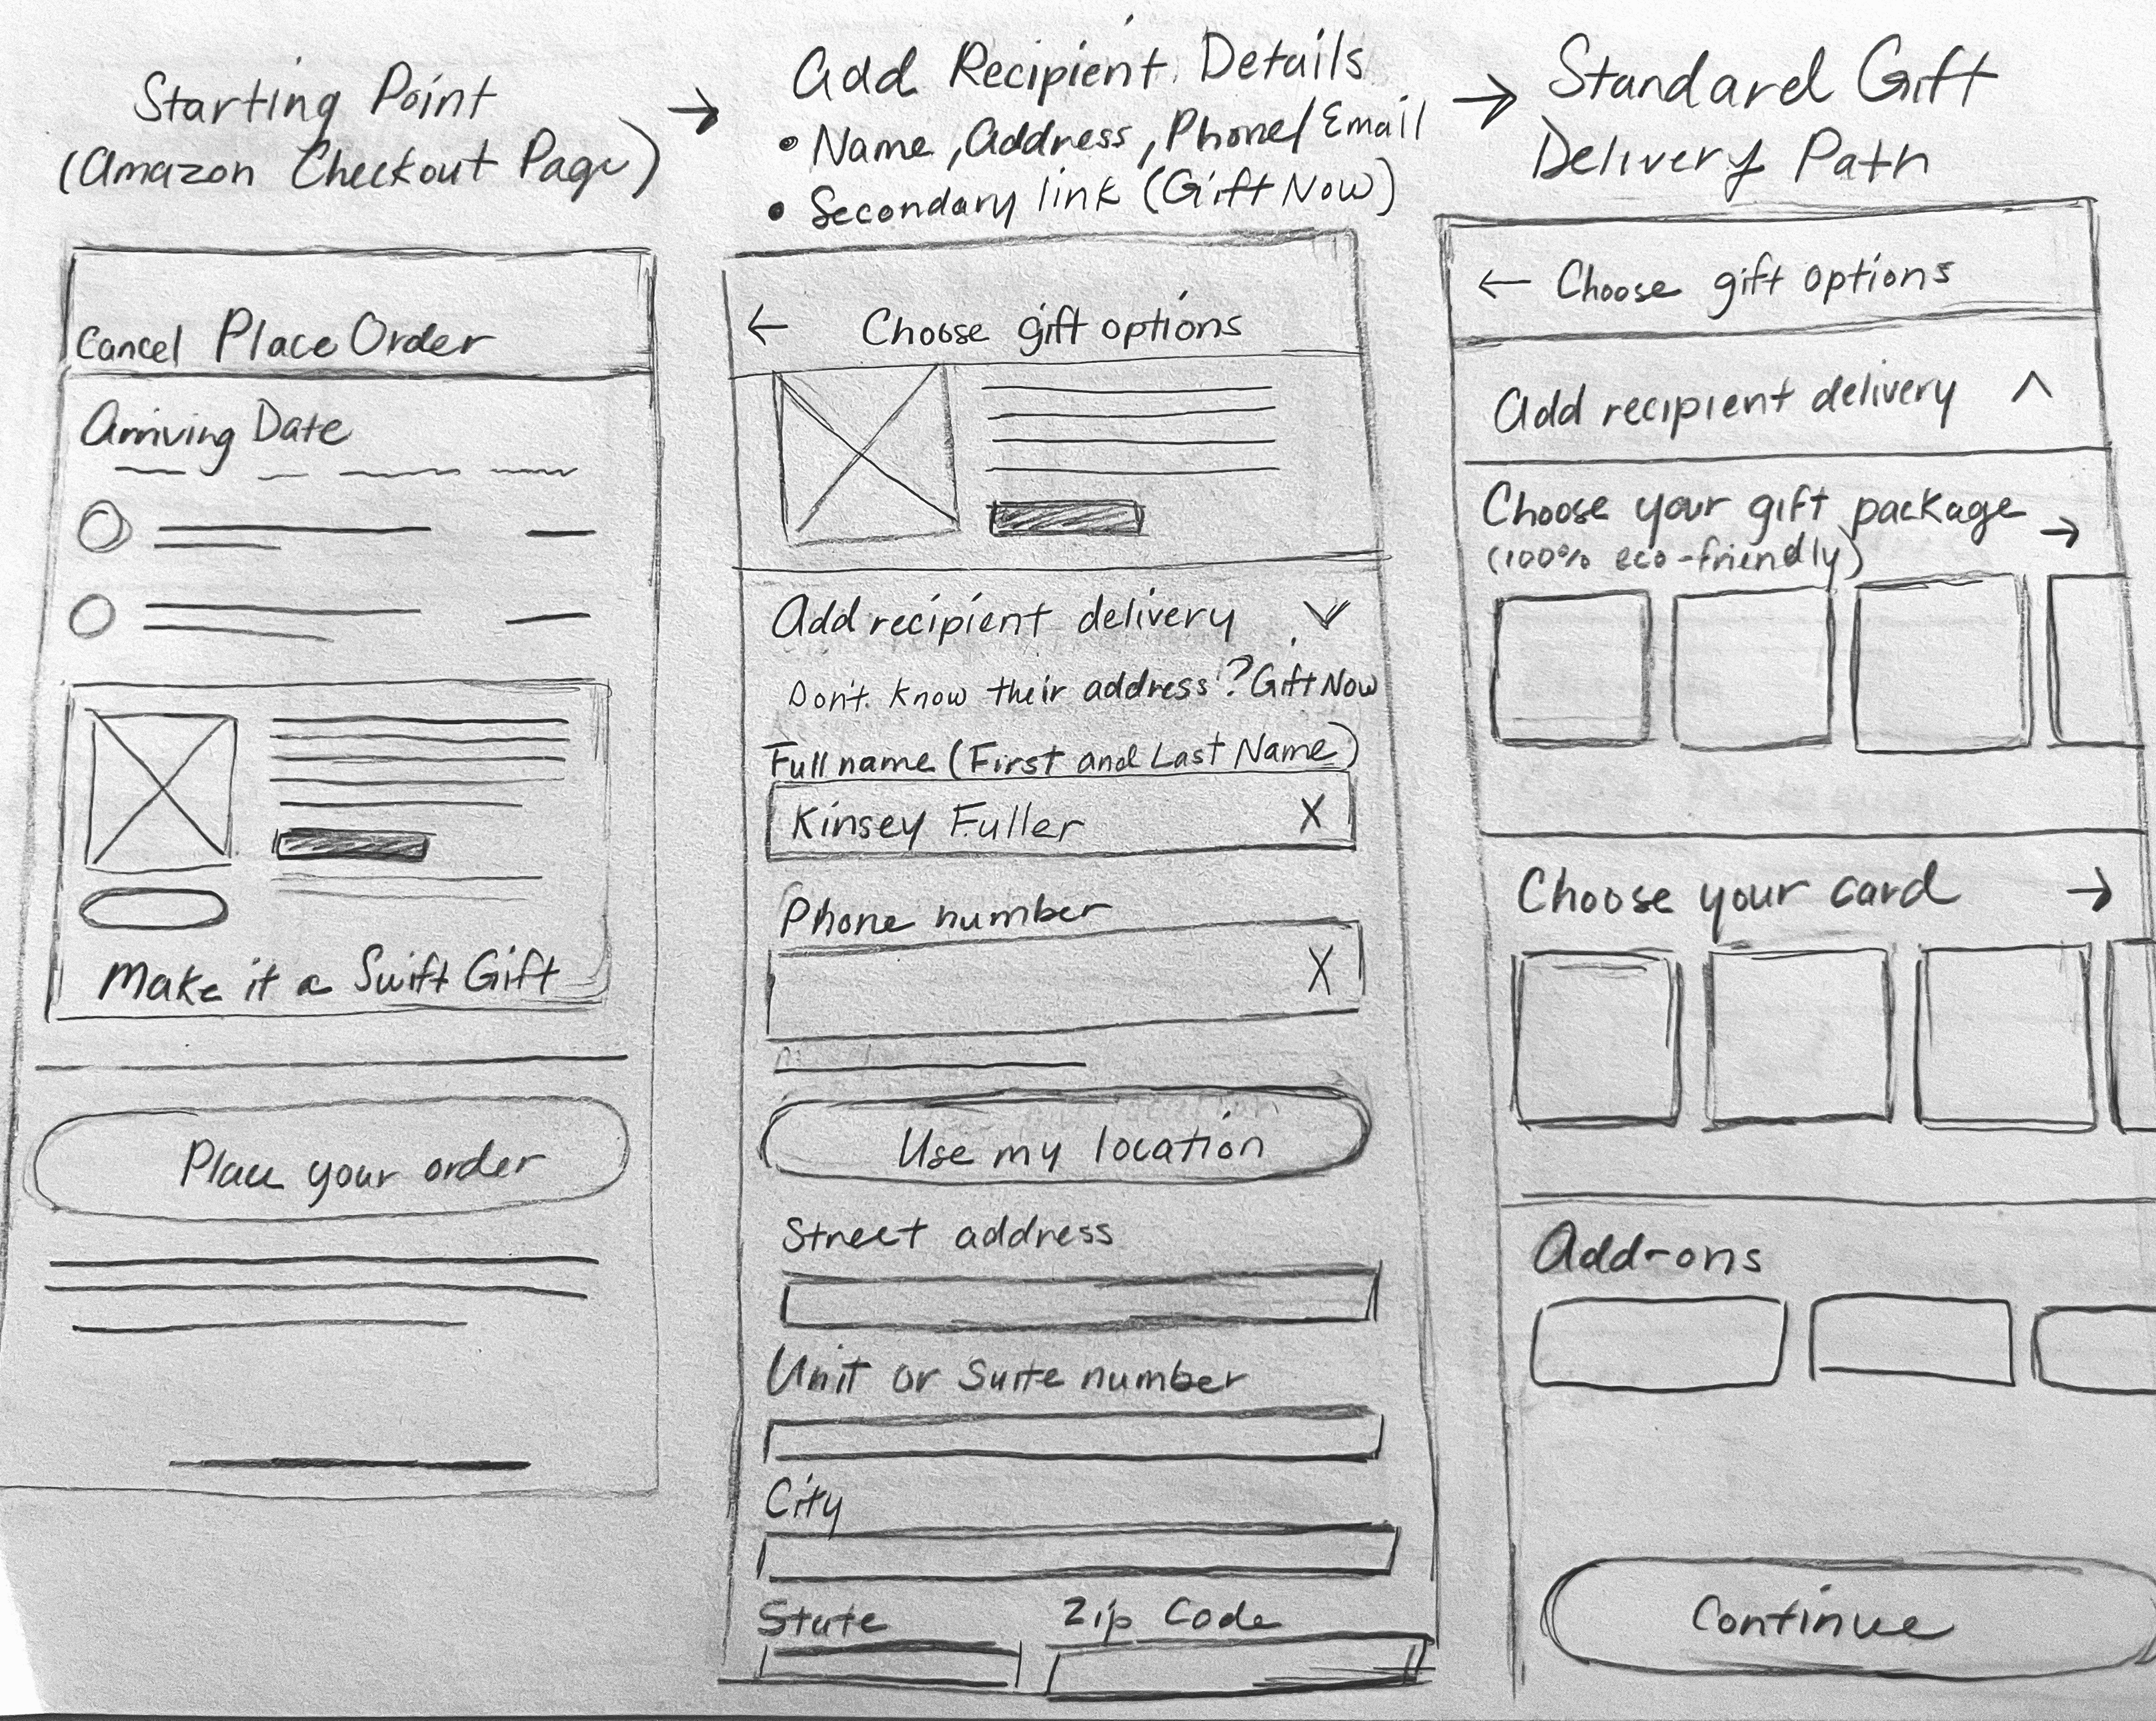 Starting Point
(Amazon Checkout Page)
→
Add Recipient Details
• Name, Address, Phone/Email
• Secondary link (Gift Now)
→
Standard Gift
Delivery Path
Cancel Place Order
Arriving Date
Make it a Swift Gift
Place your order
← Choose gift options
Add recipient delivery
Don't know their address? Gift Now
Full name (First and Last Name)
Kinsey Fuller X
Phone number
X
Use my location
Street address
Unit or Suite number
City
State Zip Code
← Choose gift options
Add recipient delivery
Choose your gift package →
(100% eco-friendly)
Choose your card →
Add-ons
Continue